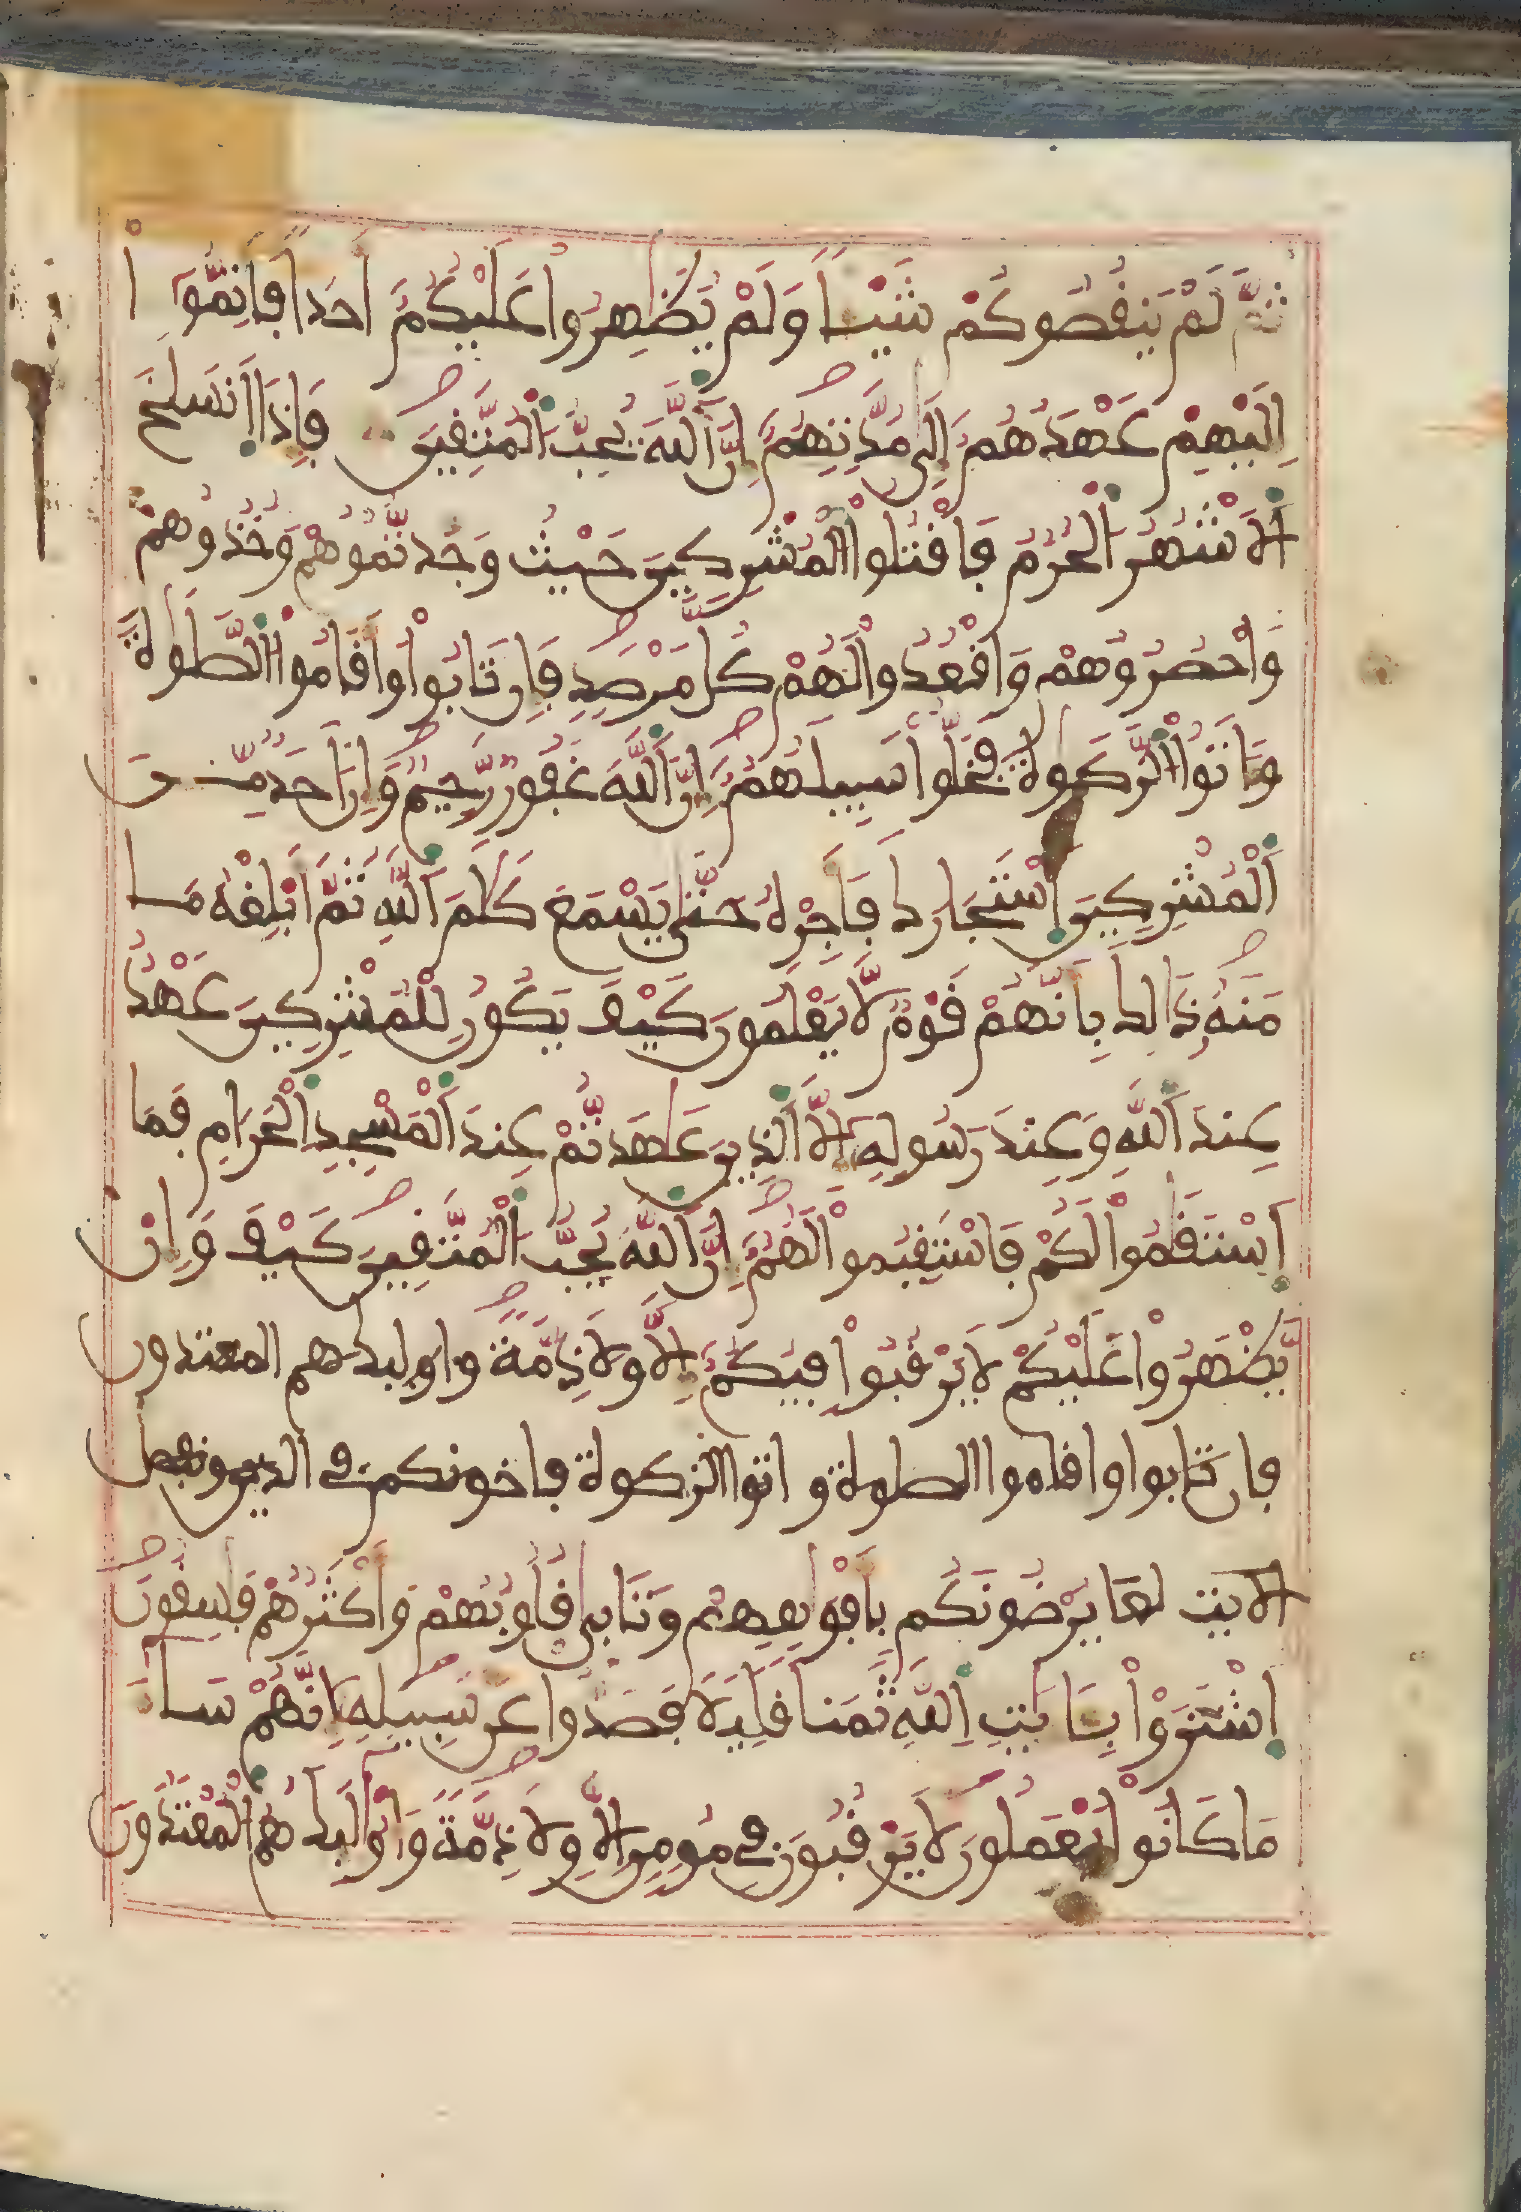 ثُمَّ لَمْ يَنقُصُوكُمْ شَيْـًٔا وَلَمْ يُظَٰهِرُوا عَلَيْكُمُ أَحَدًا فَأَتِمُّوٓا
إِلَيْهِمْ عَهْدَهُمُ إِلَىٰ مُدَّتِهِمُ إِنَّ اَللَّهَ يُحِبُّ اُلْمُتَّقِينَ فَإِذَا اَنسَلَخَ
اَلَاشْهُرُ اُلْحُرُمُ فَاقْتُلُوا اُلْمُشْرِكِينَ حَيْثُ وَجَدتُّمُوهُمْ وَخُذُوهُمْ
وَاحْصُرُوهُمْ وَاقْعُدُوا لَهُمْ كُلَّ مَرْصَدٍ فَإِن تَابُوا وَأَقَامُوا اُلصَّلَوٰةَ
وَءَاتَوُا اُلزَّكَوٰةَ فَخَلُّوا سَبِيلَهُمُ إِنَّ اَللَّهَ غَفُورٌ رَّحِيمٌ وَإِنَ اَحَدٌ مِّنَ
اَلْمُشْرِكِينَ اَسْتَجَارَكَ فَأَجِرْهُ حَتَّىٰ يَسْمَعَ كَلَٰمَ اَللَّهِ ثُمَّ أَبْلِغْهُ مَا
مَنَهُ ذَٰلِكَ بِأَنَّهُمْ قَوْمٌ لَّا يَعْلَمُونَ كَيْفَ يَكُونُ لِلْمُشْرِكِينَ عَهْدٌ
عِندَ اَللَّهِ وَعِندَ رَسُولِهِ إِلَّا اَلَّذِينَ عَٰهَدتُّمْ عِندَ اَلْمَسْجِدِ اِلْحَرَامِ فَمَا
اَسْتَقَٰمُوا لَكُمْ فَاسْتَقِيمُوا لَهُمُ إِنَّ اَللَّهَ يُحِبُّ اُلْمُتَّقِينَ كَيْفَ وَإِنْ
يَّظْهَرُوا عَلَيْكُمْ لَا يَرْقُبُوا فِيكُمُ إِلًّا وَلَا ذِمَّةً واوليك هم المعتدون
فان تابوا واقاموا الصلوة واتوا الزكوة فاخونكم في الدين ونفصل
الايت لقا يُرْضُونَكُم بِأَفْوَٰهِهِمْ وَتَابِىٰ قُلُوبُهُمْ وَأَكْثَرُهُمْ فَٰسِقُونَ
اَشْتَرَوْا بِـَٔايَٰتِ اِللَّهِ ثَمَنًا قَلِيلًا فَصَدُّوا عَن سَبِيلِهِ إِنَّهُمْ سَاءَ
مَا كَانُوا يَعْمَلُونَ لَا يَرْقُبُونَ فِي مُومِنٍ اِلًّا وَلَا ذِمَّةً وَأُوْلَٰئِكَ هُمُ اُلْمُعْتَدُونَ